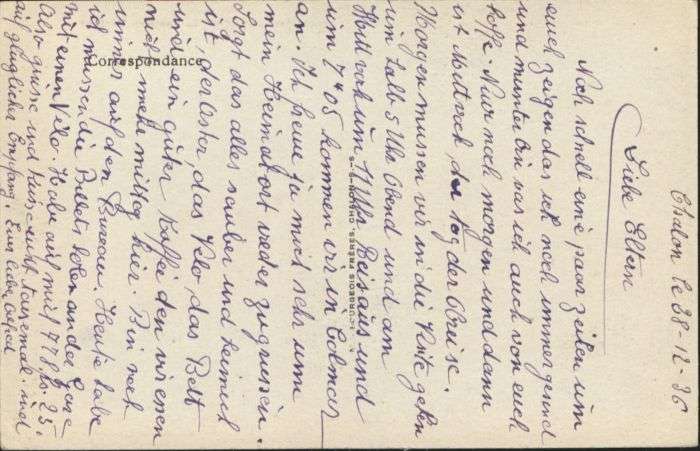 Chalon le 28-12-36
Liebe Eltern
Noch schnell eine paar Zeilen um
euch zeigen das ich noch immer gesund
und munter bin was ich auch von euch
hoffe. Nur noch morgen und dann
ist Mittwoch der Tag der Abreise.
Morgen mussen wir in die Kiste gehen
um halb 5 Uhr Abend und am
Mittwoch um 11 Uhr Reisaus und
um 7h 05 kommen wir in Colmar
an. Ich freue ja mich sehr um
mein Heimatort wieder zu grussen.
Sorgt das alles sauber und heimlich
ist, der Ofen, das Velo, das Bett
und ein guter Kaffee den wir essen
nicht mehr mittag hier. Bin noch
immer auf dem Bureau. Heute habe
ich mussen die Billets holen an der Gare
mit einen Velo. Habe auf mich 25.
Also grusse und kuss euch tausendmal und
auf glucklicher Empfang. Eug
Correspondance
FRERES, CHALON-S-S